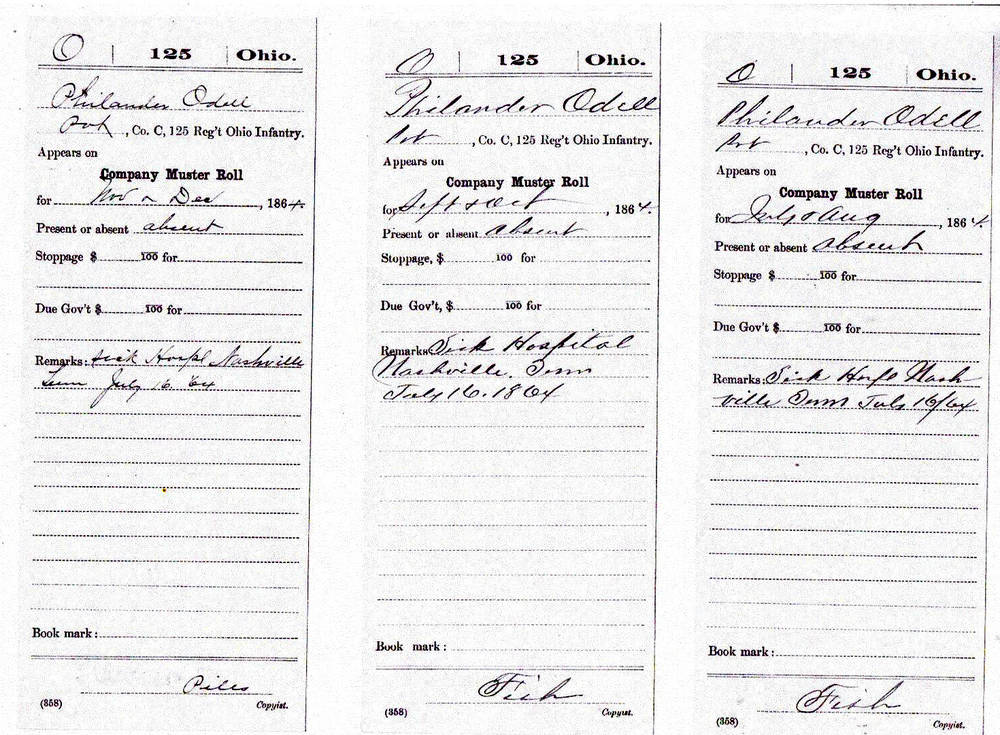 O | 125 | Ohio.
Philander Odell
Pvt, Co. C, 125 Reg't Ohio Infantry.
Appears on
Company Muster Roll
for Nov & Dec, 1864.
Present or absent absent
Stoppage $ 100 for
Due Gov't $ 100 for
Remarks: Sick Hospl Nashville
Tenn July 16, '64
Book mark:
Piles
(358) Copyist.
O | 125 | Ohio.
Philander Odell
Pvt, Co. C, 125 Reg't Ohio Infantry.
Appears on
Company Muster Roll
for Sept & Oct, 1864.
Present or absent absent
Stoppage, $ 100 for
Due Gov't, $ 100 for
Remarks: Sick Hospital
Nashville, Tenn
July 16. 1864
Book mark:
Fish
(358) Copyist.
O | 125 | Ohio.
Philander Odell
Pvt, Co. C, 125 Reg't Ohio Infantry.
Appears on
Company Muster Roll
for July & Aug, 1864.
Present or absent absent
Stoppage $ 100 for
Due Gov't $ 100 for
Remarks: Sick Hospl Nash
ville Tenn July 16/64
Book mark:
Fish
(358) Copyist.